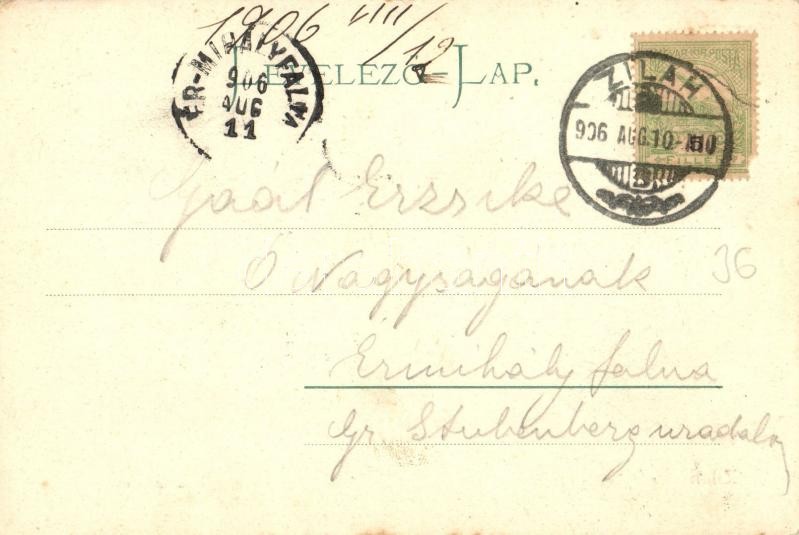 1906 VIII/12
LEVELEZŐ-LAP.
ÉR-MIHÁLYFALVA
906
AUG
11
MAGYAR KIR. POSTA
FILLÉR
ZILAH
906 AUG. 10
Gaál Erzsike
Ő Nagyságának
Érmihályfalva
gr. Stubenberg uradalom
36